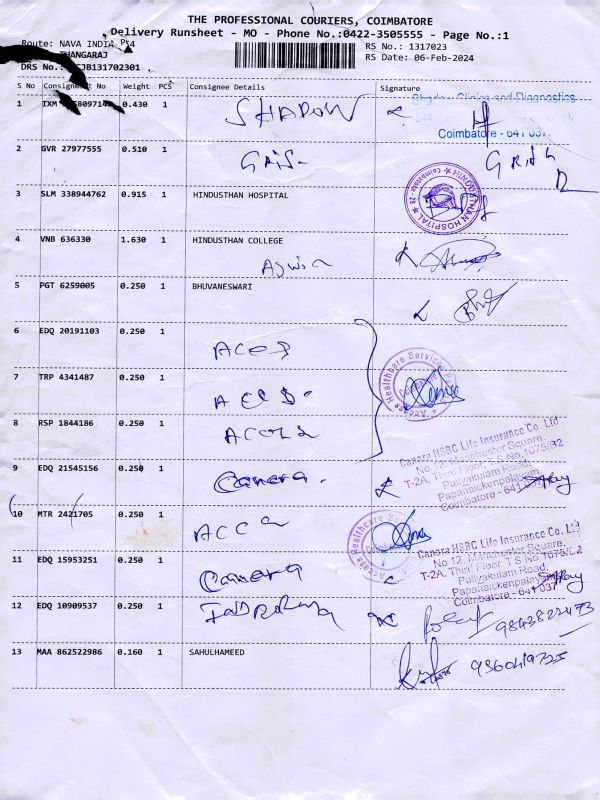 THE PROFESSIONAL COURIERS, COIMBATORE
Delivery Runsheet - MO - Phone No.:0422-3505555 - Page No.:1
Route: NAVA INDIA Pt4
THANGARAJ
RS No.: 1317023
RS Date: 06-Feb-2024
DRS No.: JB131702301
S No Consignment No Weight PCS Consignee Details Signature
1 IXM 0.430 1 SHADOW
Shadow Clinics and Diagnostics
Coimbatore - 641 037
2 GVR 27977555 0.510 1
3 SLM 338944762 0.915 1 HINDUSTHAN HOSPITAL
HINDUSTHAN HOSPITAL ★ Coimbatore - 28 ★
4 VNB 636330 1.630 1 HINDUSTHAN COLLEGE
Aswin
5 PGT 6259005 0.250 1 BHUVANESWARI
6 EDQ 20191103 0.250 1
7 TRP 4341487 0.250 1
Access Healthcare Service
8 RSP 1844186 0.250 1
9 EDQ 21545156 0.250 1 Canera.
Canara HSBC Life Insurance Co. Ltd
No 12, Manchester Square,
T-2A, Third Floor, T S No.1075/R2
Puliyakulam Road,
Papanaickenpalayam,
Coimbatore - 641
10 MTR 2421705 0.250 1
Access Healthcare Service
11 EDQ 15953251 0.250 1 Canera
Canara HSBC Life Insurance Co. Ltd
No 12, Manchester Square,
T-2A, Third Floor T S No
Puliyakulam Road,
Papanaickenpalayam
Coimbatore - 641 037
12 EDQ 10909537 0.250 1
9843822473
13 MAA 862522986 0.160 1 SAHULHAMEED
9360419725